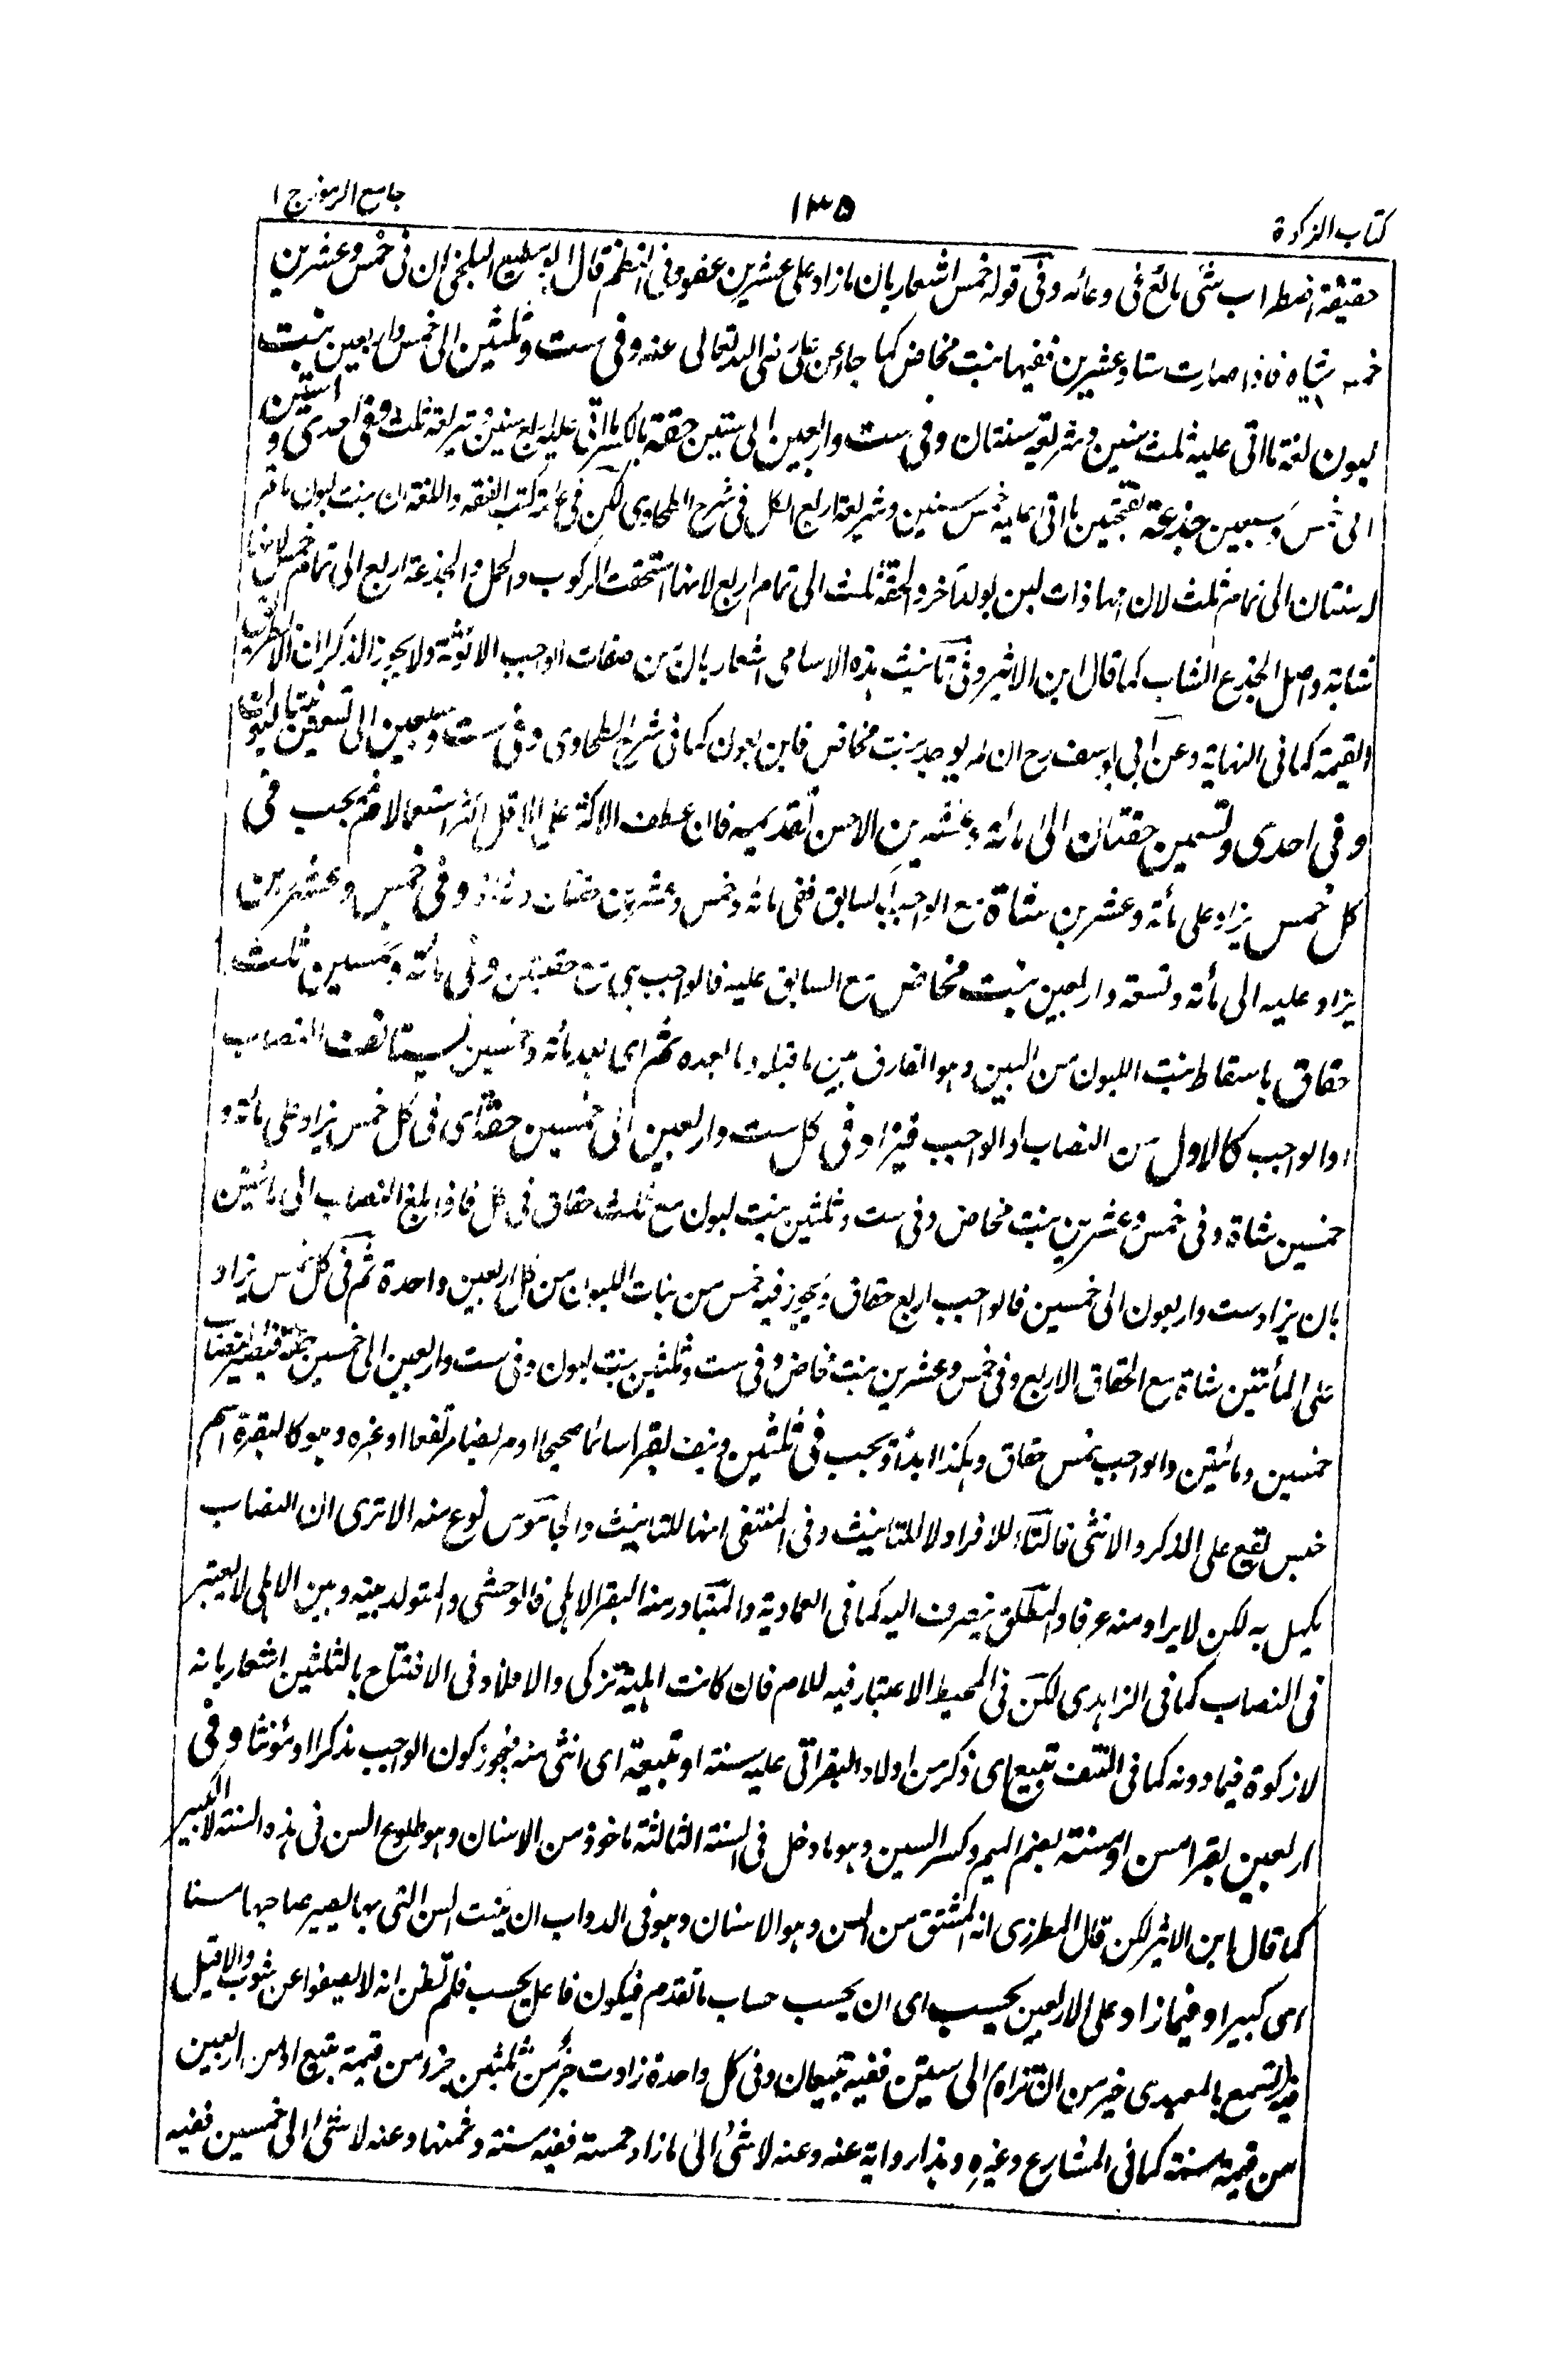 كتاب الزكوة ١٣٥ جامع الرموز ج ١
حقيقة اضطراب شئ مائع فى وعائه وفى قوله خمس اشعار بان ما زاد على عشرين عفو وفى النظم قال ابو مطيع البلخى ان فى خمس وعشرين
خمس شياه فاذا صارت ستا وعشرين ففيها بنت مخاض كما جاء عن على رضى الله تعالى عنه وفى ست وثلثين الى خمس واربعين بنت
لبون لغة ما اتى عليه ثلث سنين وشريعة سنتان وفى ست واربعين الى ستين حقة بالكسر ما اتى عليه اربع سنين وشريعة ثلث وفى احدى و استين
الى خمس وسبعين جذعة بفتحتين ما اتى عليه خمس سنين وشريعة اربع الكل فى شرح الطحاوى لكن فى عامة كتب الفقه واللغة ان بنت لبون ما تم
له سنتان الى تمام ثلث لان امها ذات لبن بولد آخر والحقة ثلث الى تمام اربع لانها استحقت الركوب والحمل والجذعة اربع الى تمام خمس لانها
شابة واصل الجذع الشاب كما قال ابن الاثير وفى تانيث هذه الاسامى اشعار بان من صفات الواجب الانوثة ولا يجوز الذكران الا بطريق
القيمة كما فى النهاية وعن ابى يوسف رح ان لم يوجد بنت مخاض فابن لبون كما فى شرح الطحاوى وفى ست وسبعين الى تسعين بنتا لبون
وفى احدى وتسعين حقتان الى مائة وعشرين الاحسن تقديمه فان عطف الاكثر على الاقل اكثر استعمالا ثم يجب فى
كل خمس يزاد على مائة وعشرين شاة مع الواجب السابق ففى مائة وخمس وعشرين حقتان وشاة وفى خمس وعشرين
يزاد عليه الى مائة وتسعة واربعين بنت مخاض مع السابق عليه فالواجب هى مع حقيقين وفى مائة وخمسين ثلث
حقاق باسقاط بنت اللبون من البين وهو الفارق بين ما قبله وما بعده ثم اى بعد مائة وخمسين يستانف النصاب
او الواجب كالاول من النصاب او الواجب فيزاد فى كل ست واربعين الى خمسين حقة اى فى كل خمس يزاد على مائة و
خمسين شاة وفى خمس وعشرين بنت مخاض وفى ست وثلثين بنت لبون مع ثلث حقاق فى كل فاذا بلغ النصاب الى مائتين
بان يزاد ست واربعون الى خمسين فالواجب اربع حقاق ويجوز فيه خمس من بنات اللبون من كل اربعين واحدة ثم فى كل خمس يزاد
على المأتين شاة مع الحقاق الاربع وفى خمس وعشرين بنت مخاض وفى ست وثلثين بنت لبون وفى ست واربعين الى خمسين حقة فيصير النصاب
خمسين ومائتين والواجب خمس حقاق وهكذا ابدا ويجب فى ثلثين ونيف بقرا سائما صحيحا او مريضا مرتفعا او غيره وهو كالبقرة اسم
جنس يقع على الذكر والانثى فالتاء للافراد لا للتانيث وفى المنتقى انها للتانيث والجاموس نوع منه الا ترى ان النصاب
يكمل به لكن لا يراد منه عرفا والمطلق ينصرف اليه كما فى العمادية والمتبادر منه البقر الاهلى فالوحشى والمتولد بينه وبين الاهلى لا يعتبر
فى النصاب كما فى الزاهدى لكن فى المحيط الاعتبار فيه للام فان كانت اهلية تزكى والا فلا وفى الافتتاح بالثلثين اشعار بانه
لا زكوة فيما دونه كما فى النتف تبيع اى ذكر من اولاد البقر اتى عليه سنة او تبيعة اى انثى منه فيجوز كون الواجب مذكرا او مؤنثا وفى
اربعين بقرا مسن او مسنة بضم الميم وكسر السين وهو ما دخل فى السنة الثالثة ماخوذ من الاسنان وهو طلوع السن فى هذه السنة لا الكبير
كما قال ابن الاثير لكن قال المطرزى انه المشتق من السن وهو الاسنان وهو فى الدواب ان ينبت السن التى بها يصير صاحبها مسنا
اى كبيرا وفيما زاد على الاربعين يحسب اى ان يحسب حساب ما تقدم فيكون فاعل يحسب فلم تظن انه لا يصفوا عن شوب والا قيل
فيه تسمع بالمعيدى خير من ان تراه الى ستين ففيه تبيعان وفى كل واحدة زادت جزء من ثلثين جزء من قيمة تبيع او من اربعين
من قيمة مسنة كما فى المشارع وغيره وهذا رواية عنه وعنه لا شئ الى ما زاد خمسة ففيه مسنة وثمنها وعنه لا شئ الى خمسين ففيه